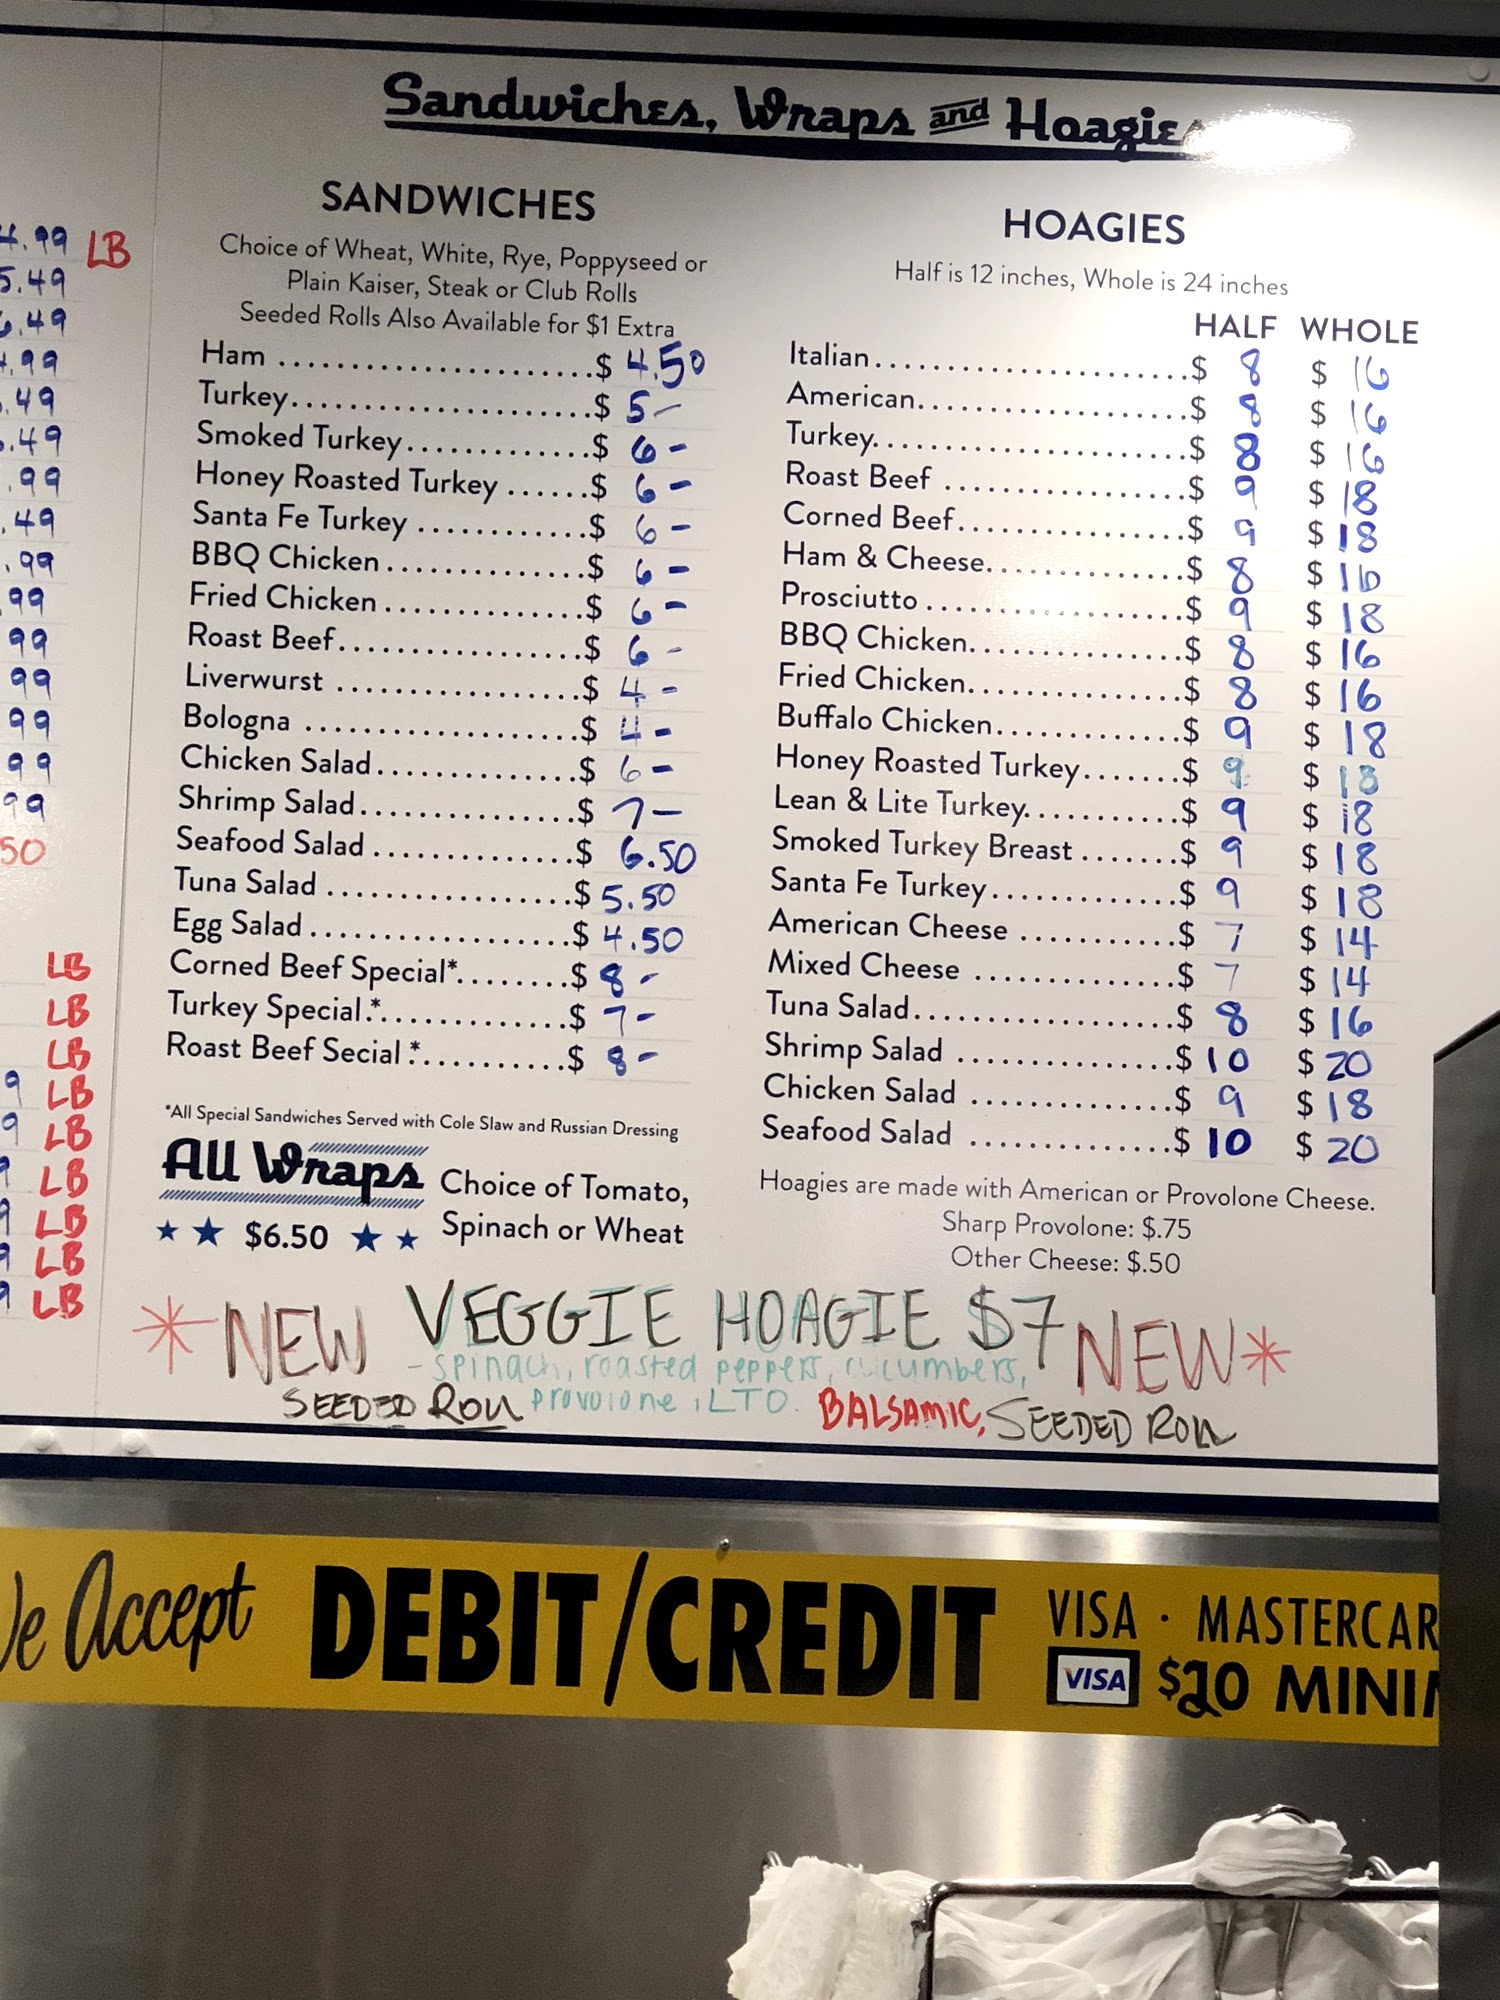 Sandwiches, Wraps and Hoagies
SANDWICHES
Choice of Wheat, White, Rye, Poppyseed or
Plain Kaiser, Steak or Club Rolls
Seeded Rolls Also Available for $1 Extra
Ham ........................$ 4.50
Turkey.......................$ 5-
Smoked Turkey..............$ 6-
Honey Roasted Turkey ......$ 6-
Santa Fe Turkey ............$ 6-
BBQ Chicken ..............$ 6-
Fried Chicken ..............$ 6-
Roast Beef.................$ 6-
Liverwurst .................$ 4-
Bologna ...................$ 4-
Chicken Salad..............$ 6-
Shrimp Salad...............$ 7-
Seafood Salad ..............$ 6.50
Tuna Salad .................$ 5.50
Egg Salad ..................$ 4.50
Corned Beef Special*........$ 8-
Turkey Special.*.............$ 7-
Roast Beef Secial .*..........$ 8-
*All Special Sandwiches Served with Cole Slaw and Russian Dressing
All Wraps
$6.50
Choice of Tomato,
Spinach or Wheat
HOAGIES
Half is 12 inches, Whole is 24 inches
HALF WHOLE
Italian.......................$ 8 $ 16
American....................$ 8 $ 16
Turkey.......................$ 8 $ 16
Roast Beef ..................$ 9 $ 18
Corned Beef.................$ 9 $ 18
Ham & Cheese..............$ 8 $ 16
Prosciutto ..................$ 9 $ 18
BBQ Chicken...............$ 8 $ 16
Fried Chicken...............$ 8 $ 16
Buffalo Chicken.............$ 9 $ 18
Honey Roasted Turkey.......$ 9 $ 18
Lean & Lite Turkey...........$ 9 $ 18
Smoked Turkey Breast .......$ 9 $ 18
Santa Fe Turkey.............$ 9 $ 18
American Cheese ...........$ 7 $ 14
Mixed Cheese ..............$ 7 $ 14
Tuna Salad...................$ 8 $ 16
Shrimp Salad ................$ 10 $ 20
Chicken Salad ..............$ 9 $ 18
Seafood Salad ..............$ 10 $ 20
Hoagies are made with American or Provolone Cheese.
Sharp Provolone: $.75
Other Cheese: $.50
*NEW VEGGIE HOAGIE $7 NEW*
- spinach, roasted peppers, cucumbers,
SEEDED ROLL provolone, LTO. BALSAMIC, SEEDED ROLL
4.99 LB
5.49
6.49
.99
.49
.49
.99
.49
.99
99
99
99
99
99
99
50
LB
LB
LB
9 LB
9 LB
9 LB
9 LB
9 LB
9 LB
Accept DEBIT/CREDIT
VISA · MASTERCAR
VISA $20 MINI